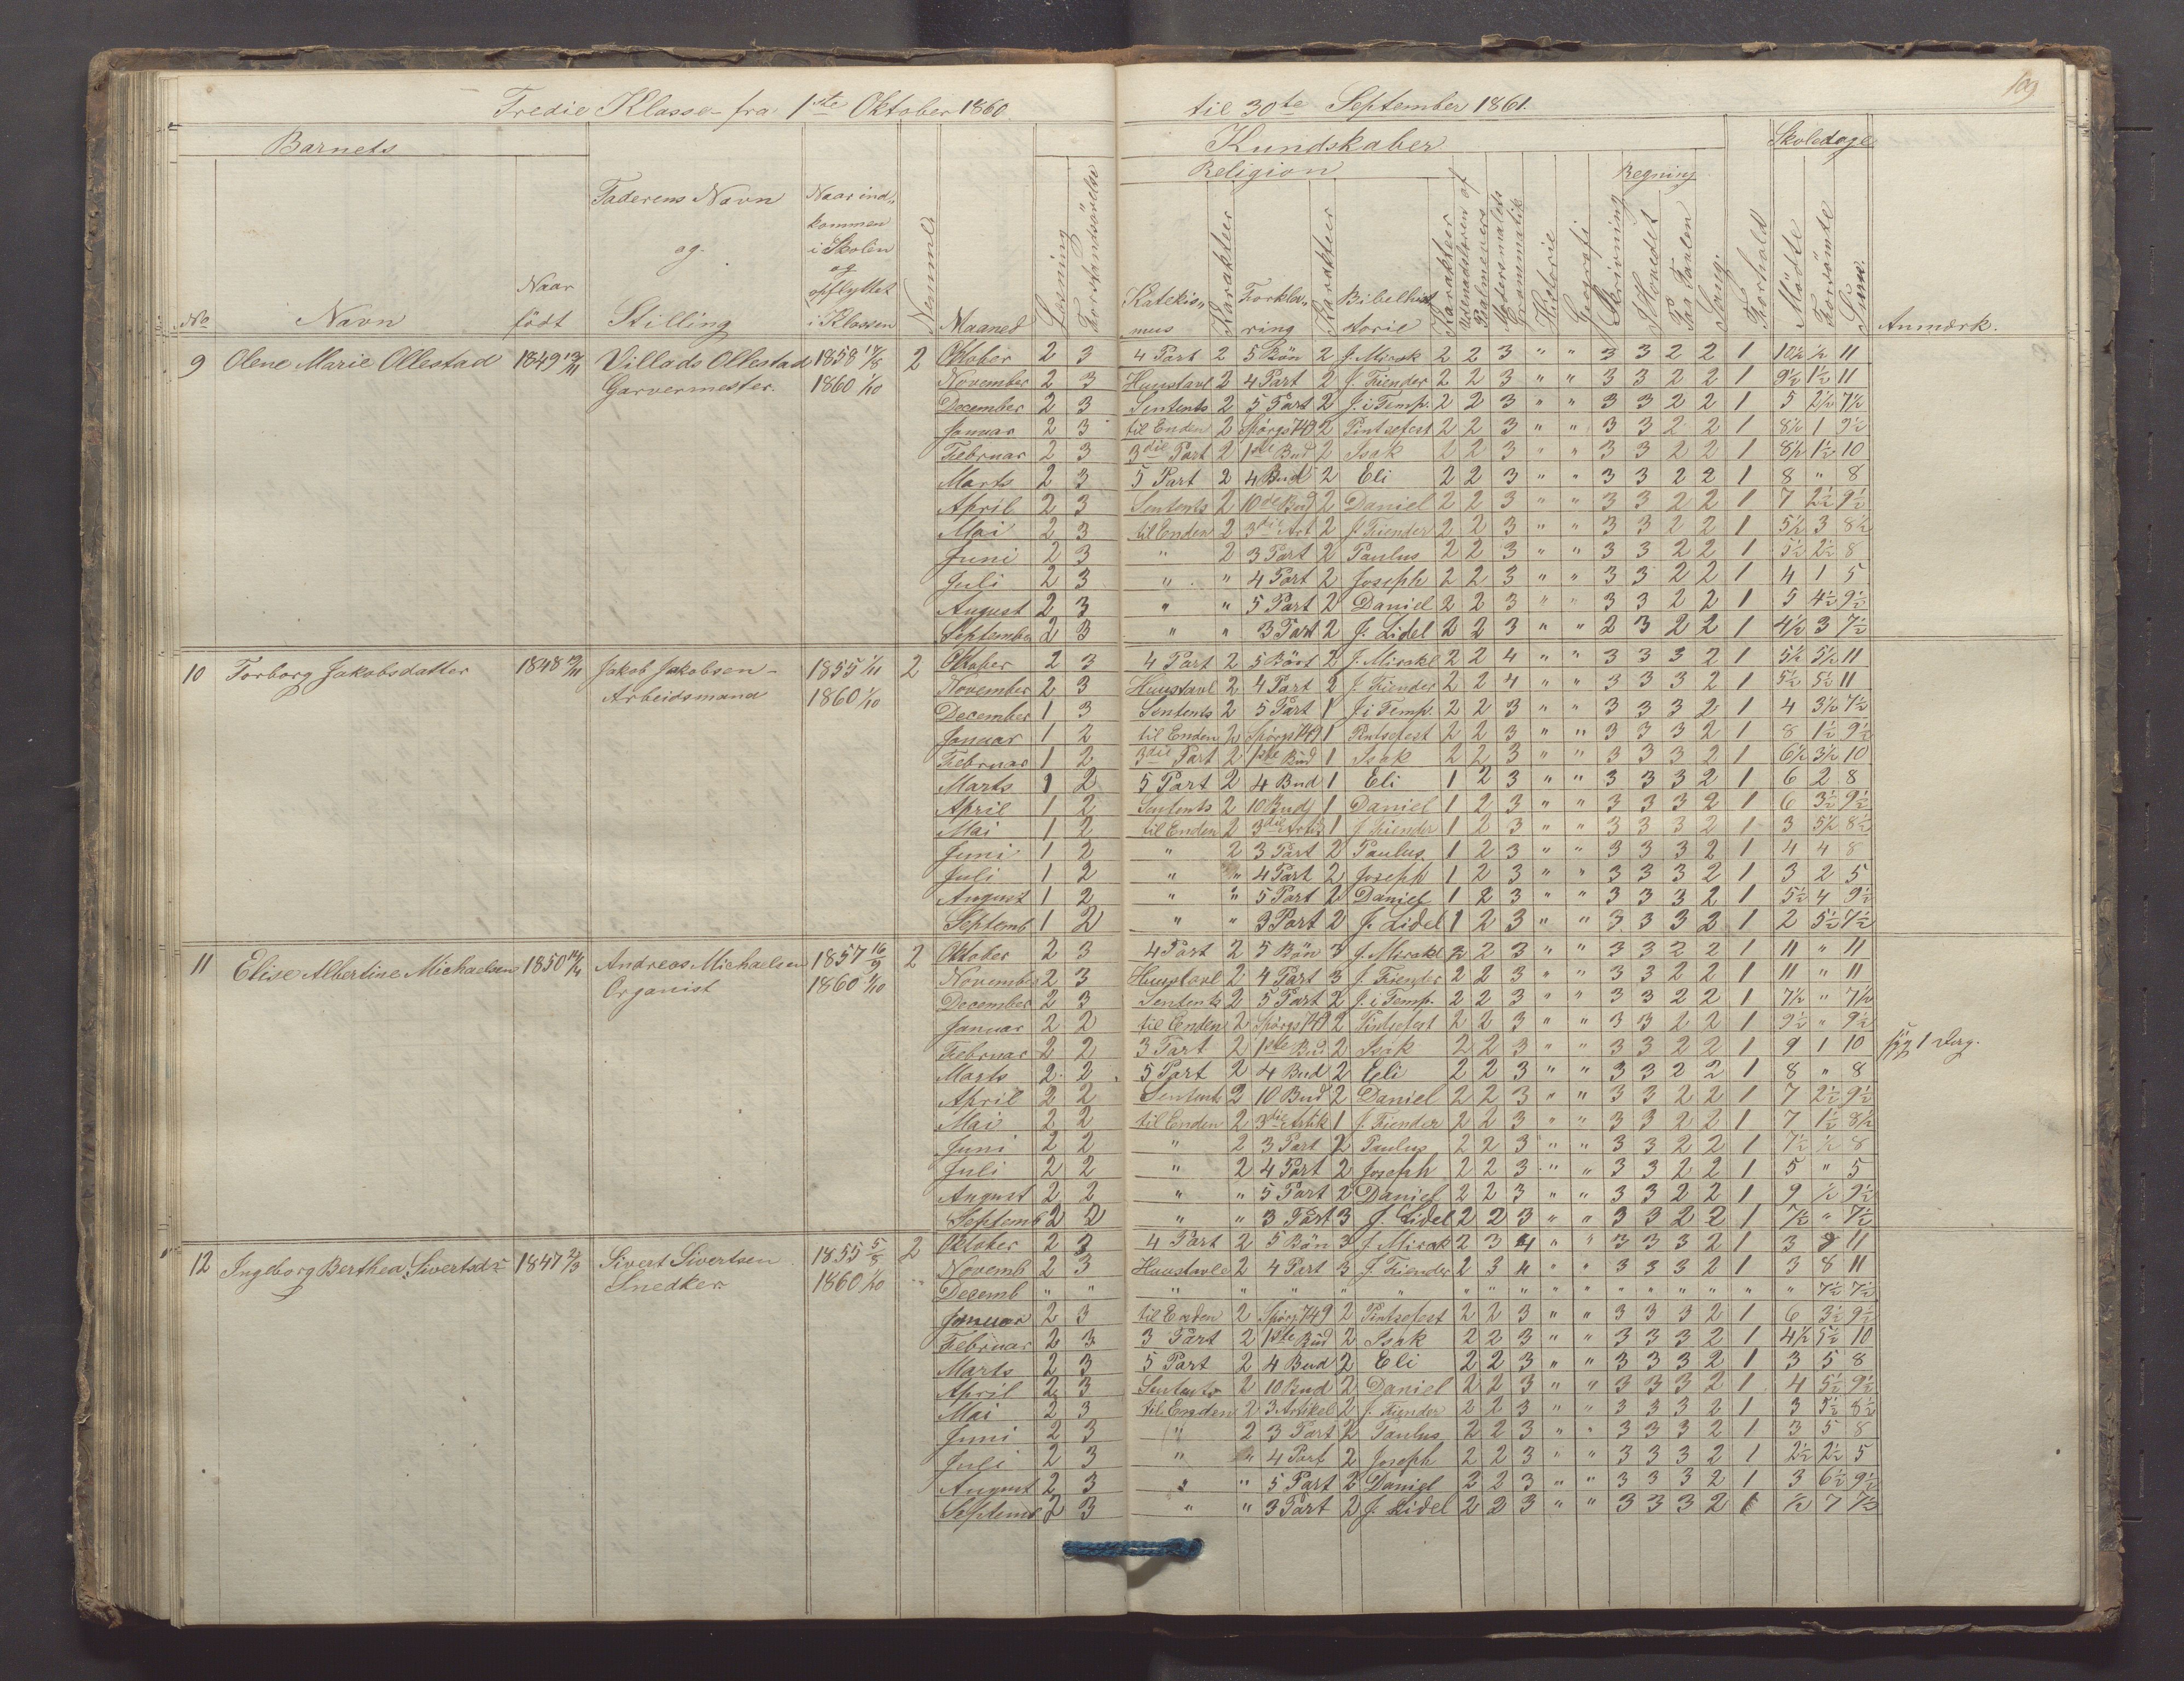 109
Tredie Klasse fra 1ste Oktober 1860 til 30te September 1861.
Barnets Kundskaber Skoledage
Religion Regning
No Navn Naar födt Faderens Navn og Stilling Naar ind„kommen i Skolen og opflyttet i Klassen Nemme Maaned Læsning Forstandsövelse Katekis„mus Karakteer Forkla„ring Karakteer Bibelhistorie Karakteer Udenadslæren af Psalmevers Modersmaalets Grammatik Historie Geografi Skrivning I Hovedet Paa Tavlen Sang. Forhold Mödte Forsömte Sum. Anmærk.
9 Olene Marie Ollestad 1849 Villads Ollestad 1858 17/8 2 Oktober 2 3 4 Part 2 5 Bön 2 J. Mirak 2 2 3 " " 3 3 2 2 1 10½ ½ 11
Garvermester. 1860 1/10 November 2 3 Huustavl 2 4 Part 2 J. Fiender 2 2 3 " " 3 3 2 2 1 9½ 1½ 11
December 2 3 Sentents 2 5 Part 2 J. i Temp. 2 2 3 " " 3 3 2 2 1 5 2½ 7½
Januar 2 3 til Enden 2 Spörgs 749 2 Pintsefest 2 2 3 " " 3 3 2 2 1 8½ 1 9½
Februar 2 3 3die Part 2 1ste Bud 2 Isak 2 2 3 " " 3 3 2 2 1 8½ 1½ 10
Marts 2 3 5 Part 2 4 Bud 2 Eli 2 2 3 " " 3 3 2 2 1 8 " 8
April 2 3 Sentents 2 10de Bud 2 Daniel 2 2 3 " " 3 3 2 2 1 7 2½ 9½
Mai 2 3 til Enden 2 3die Art 2 J. Fiender 2 2 3 " " 3 3 2 2 1 5½ 3 8½
Juni 2 3 " 2 3 Part 2 Paulus 2 2 3 " " 3 3 2 2 1 5½ 2½ 8
Juli 2 3 " " 4 Part 2 Joseph 2 2 3 " " 3 3 2 2 1 4 1 5
August 2 3 " " 5 Part 2 Daniel 2 2 3 " " 3 3 2 2 1 5 4½ 9½
September 2 3 " " 3 Part 2 J. Lidel 2 2 3 " " 2 3 2 2 1 4½ 3 7½
10 Torborg Jakobsdatter 1848 Jakob Jakobsen 1855 1/11 2 Oktober 2 3 4 Part 2 5 Bön 2 J. Mirakl 2 2 4 " " 3 3 3 2 1 5½ 5½ 11
Arbeidsmand 1860 1/10 November 2 3 Huustavl 2 4 Part 2 J. Fiender 2 2 4 " " 3 3 3 2 1 5½ 5½ 11
December 1 3 Sentents 2 5 Part 1 J i Temp. 2 2 3 " " 3 3 3 2 1 4 3½ 7½
Januar 1 2 til Enden 2 Spörgs 749 1 Pintsefest 2 2 3 " " 3 3 3 2 1 8 1½ 9½
Februar 1 2 3die Part 2 1ste Bud 1 Isak 2 2 3 " " 3 3 3 2 1 6½ 3½ 10
Marts 1 2 5 Part 2 4 Bud 1 Eli 1 2 3 " " 3 3 3 2 1 6 2 8
April 1 2 Sentents 2 10 Bud 1 Daniel 1 2 3 " " 3 3 3 2 1 6 3½ 9½
Mai 1 2 til Enden 2 3die Artik 1 J. Fiender 1 2 3 " " 3 3 3 2 1 3 5½ 8½
Juni 1 2 " 2 3 Part 2 Paulus 1 2 3 " " 3 3 3 2 1 4 4 8
Juli 1 2 " " 4 Part 2 Joseph 1 2 3 " " 3 3 3 2 1 3 2 5
August 1 2 " " 5 Part 2 Daniel 1 2 3 " " 3 3 3 2 1 5½ 4 9½
Septemb 1 2 " " 3 Part 2 J. Lidel 1 2 3 " " 3 3 3 2 1 2 5½ 7½
11 Elise Albertine Michaelsen 1850 Andreas Michaelsen 1857 16/9 2 Oktober 2 3 4 Part 2 5 Bön 3 J. Mirakl 2 2 3 " " 3 3 2 2 1 11 " 11
Organist 1860 1/10 November 2 3 Huustavl 2 4 Part 3 J. Fiender 2 2 3 " " 3 3 2 2 1 11 " 11
December 2 3 Sentents 2 5 Part 2 J. i Temp. 2 2 3 " " 3 3 2 2 1 7½ " 7½
Januar 2 2 til Enden 2 Spörgs 749 2 Pintsefest 2 2 3 " " 3 3 2 2 1 9½ " 9½
Februar 2 2 3 Part 2 1ste Bud 2 Isak 2 2 3 " " 3 3 2 2 1 9 1 10 syg 1 Dag.
Marts 2 2 5 Part 2 4 Bud 2 Eli 2 2 3 " " 3 3 2 2 1 8 " 8
April 2 2 Sentents 2 10 Bud 2 Daniel 2 2 3 " " 3 3 2 2 1 7 2½ 9½
Mai 2 2 til Enden 2 3die Artik 1 J. Fiender 2 2 3 " " 3 3 2 2 1 7 1½ 8½
Juni 2 2 " 2 3 Part 2 Paulus 2 2 3 " " 3 3 2 2 1 7½ ½ 8
Juli 2 2 " 2 4 Part 2 Joseph 2 2 3 " " 3 3 2 2 1 5 " 5
August 2 2 " " 5 Part 2 Daniel 2 2 3 " " 3 3 2 2 1 9 ½ 9½
Septemb 2 2 " " 3 Part 3 J. Lidel 2 2 3 " " 3 3 2 2 1 7½ " 7½
12 Ingeborg Berthea Sivertsdr 1847 Sivert Sivertsen 1855 5/8 2 Oktober 2 3 4 Part 2 5 Bön 3 J. Mirak 2 3 4 " " 3 3 3 2 1 3 8 11
Snedker 1860 1/10 Novemb 2 3 Huustavle 2 4 Part 3 J. Fiender 2 3 4 " " 3 3 3 2 1 3 8 11
Decemb " " " " " " " " " " " " " " " " " " " 7½ 7½
Januar 2 3 til Enden 2 Spörg 749 2 Pintsefest 2 2 3 " " 3 3 3 2 1 6 3½ 9½
Februar 2 3 3 Part 2 1ste Bud 2 Isak 2 2 3 " " 3 3 3 2 1 4½ 5½ 10
Marts 2 3 5 Part 2 4 Bud 2 Eli 2 2 3 " " 3 3 3 2 1 3 5 8
April 2 3 Sentents 2 10 Bud 2 Daniel 2 2 3 " " 3 3 3 2 1 4 5½ 9½
Mai 2 3 til Enden 2 3 Artikel 2 J. Fiender 2 2 3 " " 3 3 3 2 1 3 5½ 8½
Juni 2 3 " 2 3 Part 2 Paulus 2 2 3 " " 3 3 3 2 1 3 5 8
Juli 2 3 " " 4 Part 2 Joseph 2 2 3 " " 3 3 3 2 1 2½ 2½ 5
August 2 3 " " 5 Part 2 Daniel 2 2 3 " " 3 3 3 2 1 3 6½ 9½
Septemb 2 3 " " 3 Part 2 J. Lidel 2 2 3 " " 3 3 3 2 1 ½ 7 7½